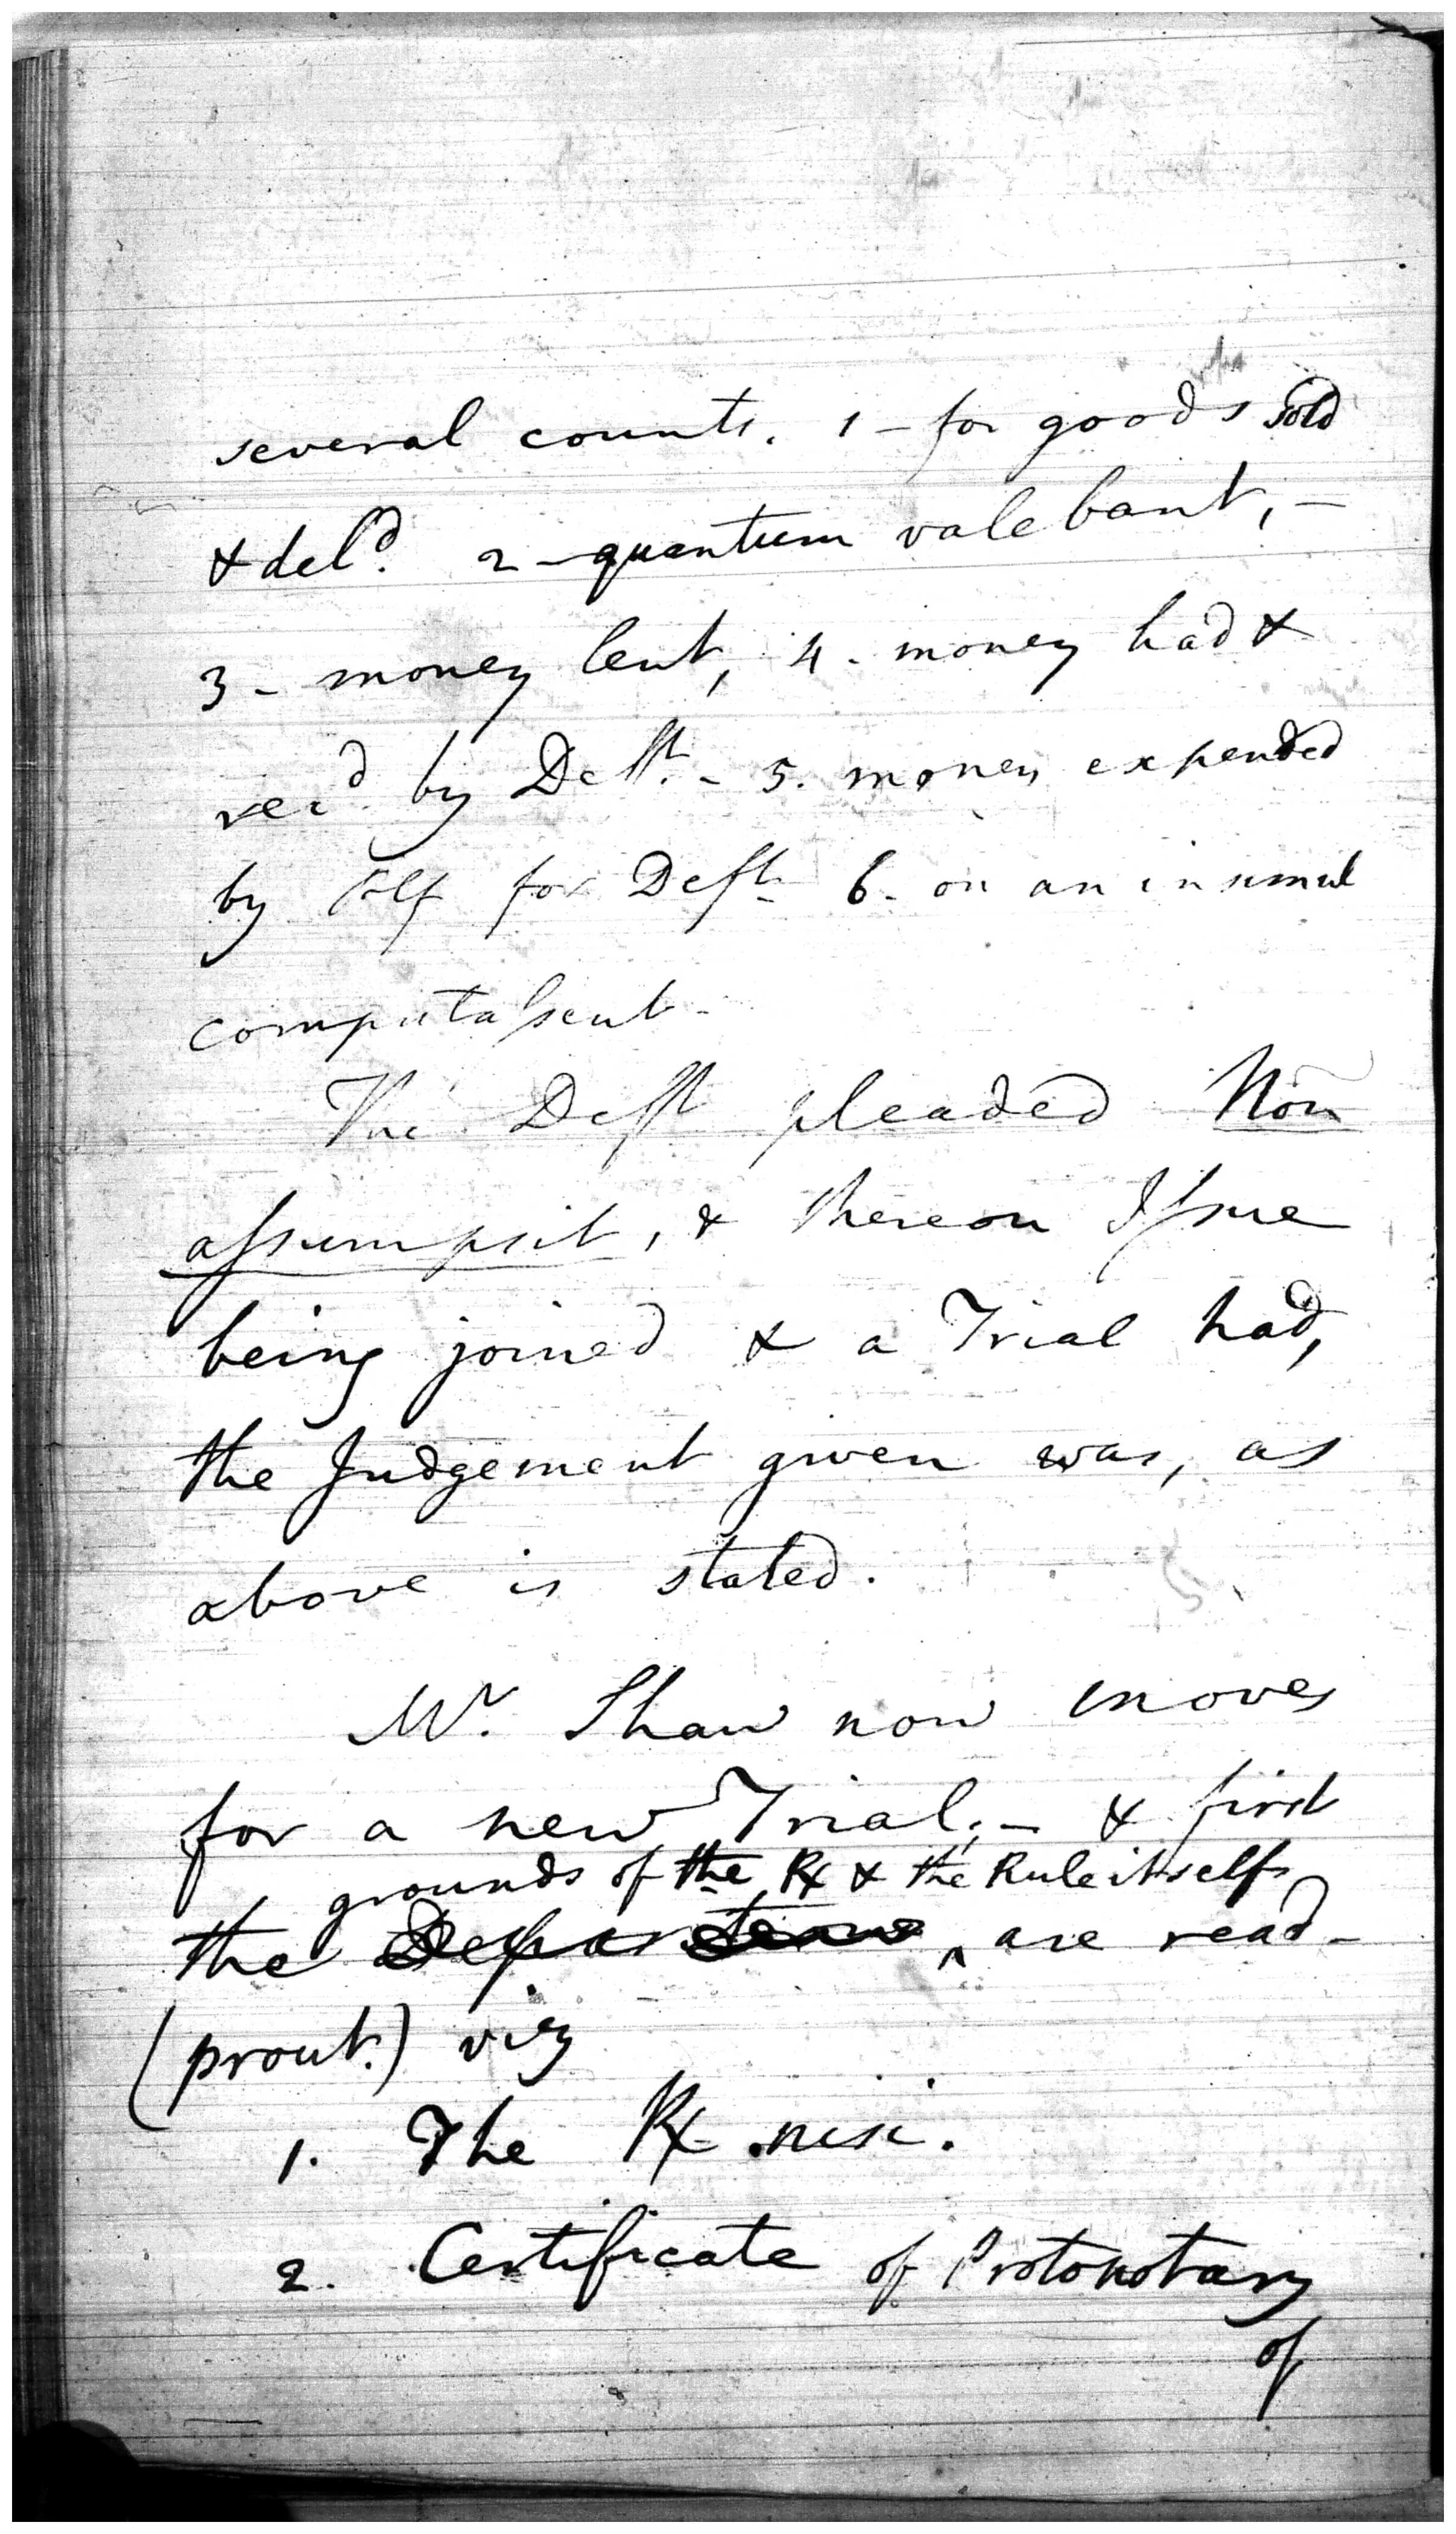 several counts. 1 - for goods sold
& del'd. 2 - quantum valebant, -
3 - money lent, 4 - money had &
rec'd by Deft. - 5. money expended
by Plf for Deft - 6 - on an insimul
computassent -
The Deft pleaded Non
assumpsit, & thereon Issue
being joined & a Trial had,
the Judgement given was, as
above is stated.
Mr. Shaw now moves
for a new Trial; - & first
grounds of the Rx & the Rule itself
the Depositions ^ are read -
(prout.) viz
1. The Rx nisi.
2. Certificate of Protonotary
of